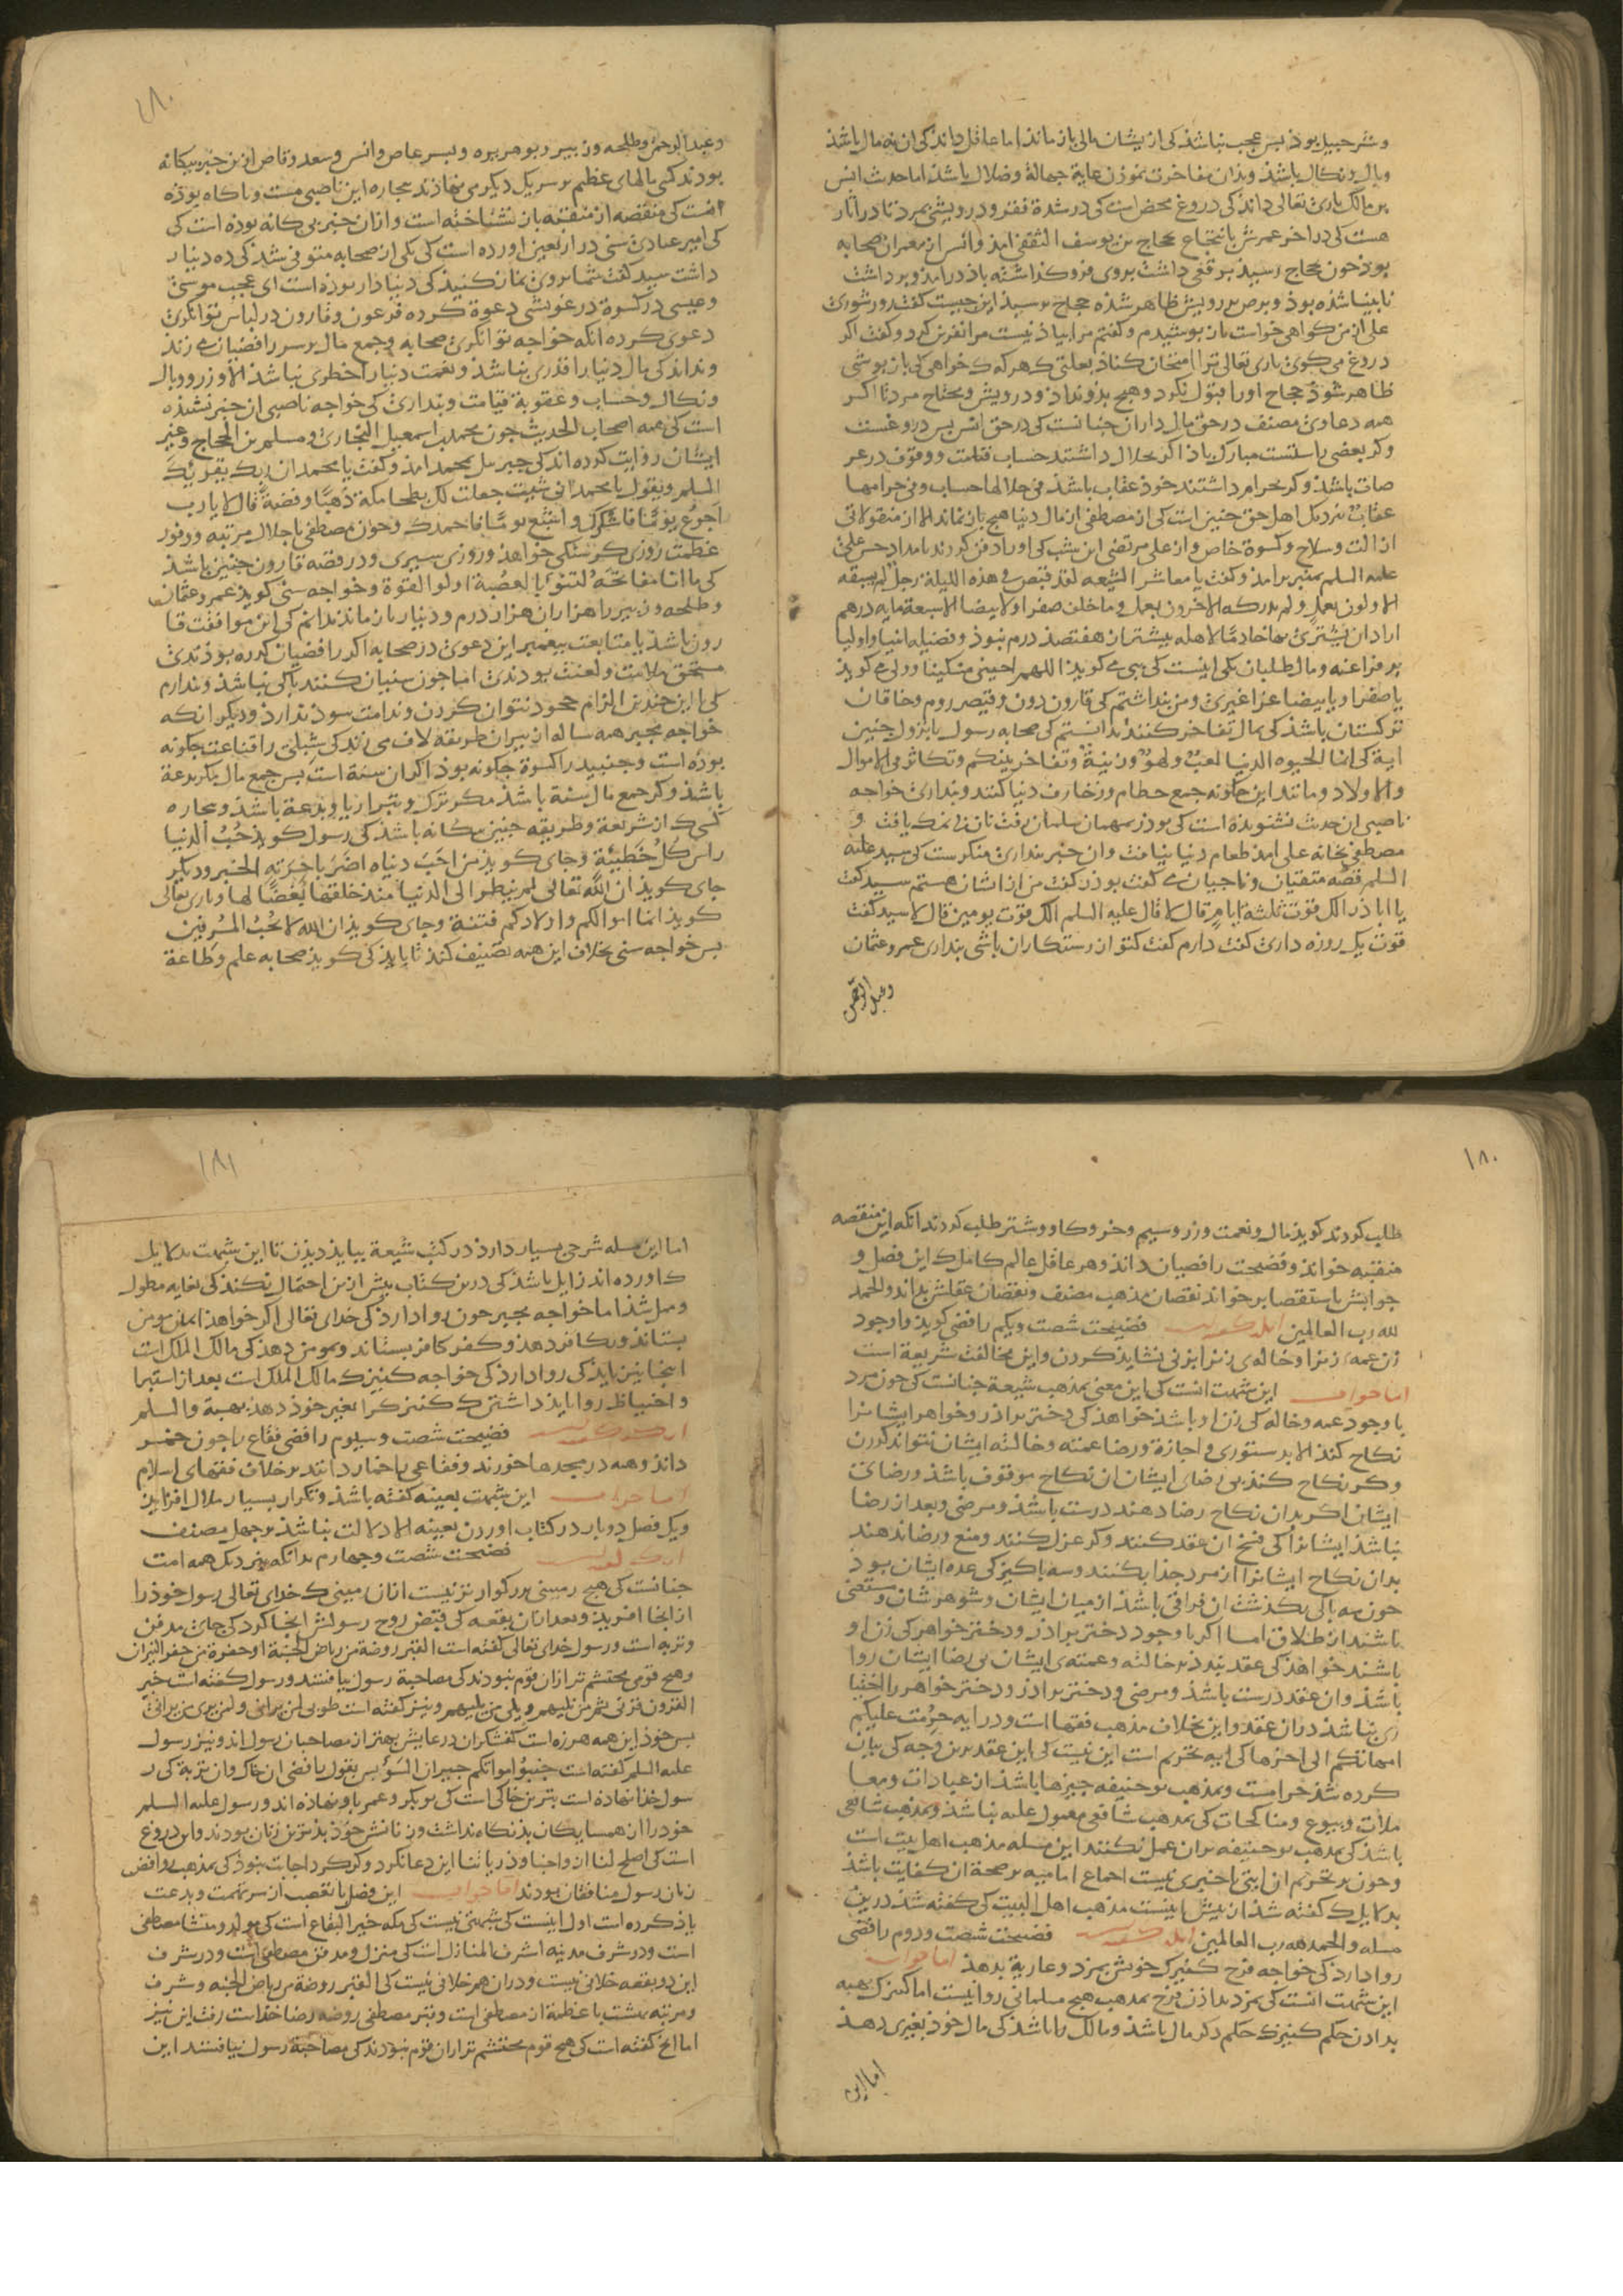 و شرحبیل بوذ بس عجب نباشذ کی از یشان مالی باز ماند اما عاقل داند کی ان نه مال باشذ
وبال و نکال باشذ و بدان مفاخرت نموذن غایة جهالة و ضلال باشذ اما حدث انس
بن مالک باری تعالی داند کی دروغ محض است کی در شدة فقر و درویشی بمرد تا در اثار
هست کی در اخر عمرش بانتجاع بحجاج بن یوسف الثقفی امذ و انس از معمران صحابه
بوذ جون بحجاج رسیذ برقعی داشت بروی فرو کذاشته باذ درامذ و برداشت
نابینا شذه بوذ و برص بر رویش ظاهر شذه حجاج برسیذ این جیست کفت در شوری
علی از من کواهی خواست باز بوشیدم و کفتم مرا بیاذ نیست مرا نفرین کرد و کفت اکر
دروغ می کوی باری تعالی ترا امتحان کناذ بعلتی ک هر که ک خواهی کی باز بوشی
ظاهر شوذ حجاج او را قبول نکرد و هیج بذو نداذ و درویش و محتاج مرد تا اکر
همه دعاوی مصنف در حق مال داران جنانست کی در حق انس بس دروغست
و کر بعضی راستست مبارک باذ اکر بحلال داشتند حساب قیامت و وقوف در عر
صات باشذ و کر بحرام داشتند خوذ عقاب باشذ فی حلالها حساب و فی حرامها
عقاب بنزدیک اهل حق جنین است کی از مصطفی از مال دنیا هیج باز نماند الا از منقولاتی
از الت و سلاح و کسوة خاص و از علی مرتضی این شب کی او را دفن کردند بامداد حسن علی
علیه السلم بمنبر برامذ و کفت یا معاشر الشیعه لقد قبض فی هذه اللیلة رجل لم یسبقه
الاولون بعمل و لم یدرکه الاخرون بعمل و ما خلف صفرا و لا بیضا الا سبعة مایه درهم
اراد ان یشتری بها خادما لاهله بیشتر از هفتصذ درم نبوذ و فضیله انبیا و اولیا
بر فراعنه و مال طلبان یکی اینست کی نبی می کویذ اللهم احینی مسکینا و ولی می کویذ
یا صفرا و یا بیضا غرا غیری و من بنداشتم کی قارون دون و قیصر روم و خاقان
ترکستان باشذ کی بمال تفاخر کنند ندانستم کی صحابه رسول با نزول جنین
ایة کی انما الحیوه الدنیا لعب و لهو و زینة و تفاخر بینکم و تکاثر فی الاموال
و الاولاد و مانند این جکونه جمع حطام و زخارف دنیا کنند و بنداری خواجه
ناصبی ان حدث نشنوده است کی بوذر بمهمان سلمان رفت نان یافت نمک نیافت و
مصطفی بخانه علی امذ طعام دنیا نیافت و ان خبر بنداری منکرست کی سید علیه
السلم قصه متقیان و ناجیان می کفت بوذر کفت من از اشان هستم سید کفت
یا اباذر الک قوت ثلثة ایام قال لا قال علیه السلم الک قوت یومین قال لا سید کفت
قوت یک روزه داری کفت دارم کفت کتو از رستکاران باشی بنداری عمر و عثمان
وعبد الرحمن
۱۸۰
و عبد الرحمن و طلحه و زبیر و بوهریره و بسر عاص و انس و سعد وقاص ازین خبر بیکانه
بودند کی مالهای عظیم بر سر یک دیکر می نهاذند بیجاره این ناصبی مست و نا اکاه بوذه
است کی منقصه از منقبه باز نشناخته است و از ان خبر بی کانه بوذه است کی
کی امیر عبادی سنی در اربعین اورده است کی یکی از صحابه متوفی شذ کی ده دینار
داشت سید کفت شما بروی نماز کنیذ کی دنیا دار بوذه است ای عجب موسی
و عیسی در کسوة درویشی دعوة کرده فرعون و قارون در لباس توانکری
دعوی کرده انکه خواجه توانکری صحابه و جمع مال بر سر رافضیان می زند
و نداند کی مال دنیا را قدری نباشذ و نعمت دنیا را خطری نباشذ الا وزر و وبال
و نکال و حساب و عقوبة قیامت و بنداری کی خواجه ناصبی ان خبر نشنیذه
است کی همه اصحاب الحدیث جون محمد بن اسمعیل البخاری و مسلم بن الحجاج و غیر
ایشان روایت کرده اند کی جبریل بمحمد امذ و کفت یا محمد ان ربک یقریک
السلم و یقول یا محمد ان شیت جعلت لک بطحا مکة ذهبا و فضة قال لا یا رب
اجوع یوما فاشکرک و اشبع یوما فاحمدک و جون مصطفی باجلال مرتبه و وفور
عظمت روزی کرسنکی خواهذ و روزی سیری و در قصه قارون جنین باشذ
کی ما ان مفاتحه لتنوا بالعصبة اولو القوة و خواجه سنی کویذ عمر و عثمان
و طلحه و زبیر را هزاران هزار درم و دینار باز ماند ندانم کی این موافقت قا
رون باشذ یا متابعت بیغمبر این دعوی در صحابه اکر رافضیان کرده بوذندی
مستحق ملامت و لعنت بودندی اما جون سنیان کنند باکی نباشذ و ندارم
کی با این جندین الزام جحود نتوان کردن و ندامت سوذ ندارذ و دیکر انکه
خواجه مجبر همه ساله از بیران طریقه لاف می زند کی شبلی را قناعت جکونه
بوذه است و جنید را کسوة جکونه بوذ اکر ان سنة است بس جمع مال بکر بدعة
باشذ و کر جمع مال سنة باشذ مکر ترک و تبرا ریا و بدعة باشذ و بیجاره
کسی ک از شریعة و طریقه جنین بیکانه باشذ کی رسول کویذ حب الدنیا
راس کل خطیئة و جای کویذ من احب دنیاه اضر باخرته الخبر و دیکر
جای کویذ ان الله تعالی لم ینظر الی الدنیا منذ خلقها بغضا لها و باری تعالی
کویذ انما اموالکم و اولادکم فتنة و جای کویذ ان الله لا یحب المسرفین
بس خواجه سنی بخلاف این همه تصنیف کند تا باید کی کویذ صحابه علم و طاعة
۱۸۰
طلب کردند کویذ مال و نعمت و زر و سیم و خر و کاو و شتر طلب کردند انکه این منقصه
منقبه خواند و فضیحت رافضیان داند و هر عاقل عالم کامل ک این فصل و
جوابش باستقصا بر خواند نقصان مذهب مصنف و نقصان عقلش بداند و الحمد
لله رب العالمین انکه کفتست فضیحت شصت و یکم رافضی کویذ با وجود
زن عمه زنرا و خاله ی زنرا بزنی نشایذ کردن و این مخالفت شریعة است
اما جواب این شبهت انست کی این معنی بمذهب شیعة جنانست کی جون مرد
با وجود عمه و خاله کی زن او باشذ خواهذ کی دختر براذر و خواهر ایشانرا
نکاح کنذ الا بدستوری و اجازة و رضا عمته و خالته ایشان نتواند کردن
و کر نکاح کنذ بی رضای ایشان ان نکاح موقوف باشذ و رضای
ایشان اکر بدان نکاح رضا دهند درست باشذ و مرضی و بعد از رضا
نباشذ ایشانرا کی فسخ ان عقد کنند و کر عزل کنند و منع و رضا ندهند
بدان نکاح ایشانرا از مرد جذا بکنند و سه باکیزکی عده ایشان بوذ
جون سه باکی بکذشت ان فراقی باشذ از میان ایشان و شوهرشان و مستغنی
باشند از طلاق اما اکر با وجود دختر براذر و دختر خواهر کی زن او
باشند خواهذ کی عقد بندد بر خالته و عمته ی ایشان بی رضا ایشان روا
باشذ و ان عقد درست باشذ و مرضی و دختر براذر و دختر خواهر را اختیا
ری نباشذ در ان عقد و این بخلاف مذهب فقها است و در ایه حرمت علیکم
امهاتکم الی اخرها کی ایه تحریم است این نیست کی این عقد برین وجه کی بیان
کرده شذ حرامست و بمذهب بوحنیفه جیزها باشذ از عبادات و معا
ملات و بیوع و مناکحات کی بمذهب شافعی معمول علیه نباشذ و بمذهب شافعی
باشذ کی بمذهب بوحنیفه بران عمل نکنند این مسله مذهب اهل بیت است
و جون بر تحریم ان ایتی یا خبری نیست اجماع امامیه بر صحة ان کفایت باشذ
بدلایل ک کفته شذ ازبیش اینست مذهب اهل البیت کی کفته شذ درین
مسله و الحمد لله رب العالمین انکه کفتست فضیحت شصت و دوم رافضی
روا دارد کی خواجه فرج کنیزک خویش بمزد و عاریة بدهذ اما جواب
این شبهت انست کی بمزد داذن فرج بمذهب هیج مسلمانی روا نیست اما کنیزک بهبه
بدادن حکم کنیزک حکم دکر مال باشذ و مالک را باشذ کی مال خوذ بغیری دهذ
اما این
۱۸۱
اما این مسله شرحی بسیار دارد در کتب شیعة بیایذ دیذن تا این شبهت بدلایل
ک اورده اند زایل باشذ کی درین کتاب بیش ازین احتمال نکند کی بغایه مطول
و ممل شذ اما خواجه مجبر جون روا دارذ کی خدای تعالی اکر خواهذ ایمان مومن
بستاند و بکافر دهذ و کفر کافر بستاند و بمومن دهذ کی مالک الملک است
اینجا نیز بایذ کی روا دارذ کی خواجه کنیزک مالک الملک است بعد از استبرا
و احتیاط روا بایذ داشتن ک کنیزک را بغیر خوذ دهذ بهبة و السلم
انکه کفتست فضیحت شصت و سیوم رافضی فقاع را جون خمر
داند و همه در مجدها خورند و فقاعی را خمار دانند بر خلاف فقهای اسلام
اما جواب این شبهت بعینه کفته باشذ و تکرار بسیار ملال افزایذ
و یک فصل دوبار در کتاب اوردن بعینه الا دلالت نباشذ بر جهل مصنف
انکه کفتست فضیحت شصت و جهارم بدانکه بنزدیک همه امت
جنانست کی هیج زمینی بزرکوارتر نیست از ان زمینی ک خدای تعالی رسول خوذ را
از انجا افریذ و بعد از ان بقعه کی قبض روح رسولش انجا کرد کی جای مدفن
و تربه است و رسول خدای تعالی کفته است القبر روضة من ریاض الجنة او حفرة من حفر النیران
و هیج قومی محتشم تر از ان قوم نبودند کی مصاحبة رسول یافتند و رسول کفته است خیر
القرون قرنی ثم من یلیهم و یلی من یلیهم و نیز کفته است طوبی لمن رانی و لمن یری من رانی
بس خوذ این همه هرزه است کفشکران در عایش بهتر از مصاحبان رسول اند و نیز رسول
علیه السلم کفته است جنبوا امواتکم جیران السوء بس بقول رافضی ان خاک و ان تربة کی ر
سول خدا نهاذه است بترین خاکی است کی بوبکر و عمر با او نهاذه اند و رسول علیه السلم
خوذ را از همسایکان بذ نکاه نداشت و زنانش خوذ بذترین زنان بودند و این دروغ
است کی اصلح لنا ازواجنا و ذریاتنا این دعا نکرد و کر کرد اجابت نبوذ کی بمذهب روافض
زنان رسول منافقان بودند اما جواب این فصل با تعصب از سر تهمت و بدعت
یاذ کرده است اول اینست کی شبهتی نیست کی مکه خیر البقاع است کی مولد و منشا مصطفی
است و در شرف مدینه اشرف المنازل است کی منزل و مدفن مصطفی است و در شرف
این دو بقعه خلافی نیست و در ان هم خلافی نیست کی القبر روضة من ریاض الجنه و شرف
و مرتبه بهشت با عظمة از مصطفی است و بقبر مصطفی روضه رضا خذاست رفت این نیز
اما انج کفته است کی هیج قوم محتشم تر از ان قوم نبوذند کی مصاحبة رسول یافتند این